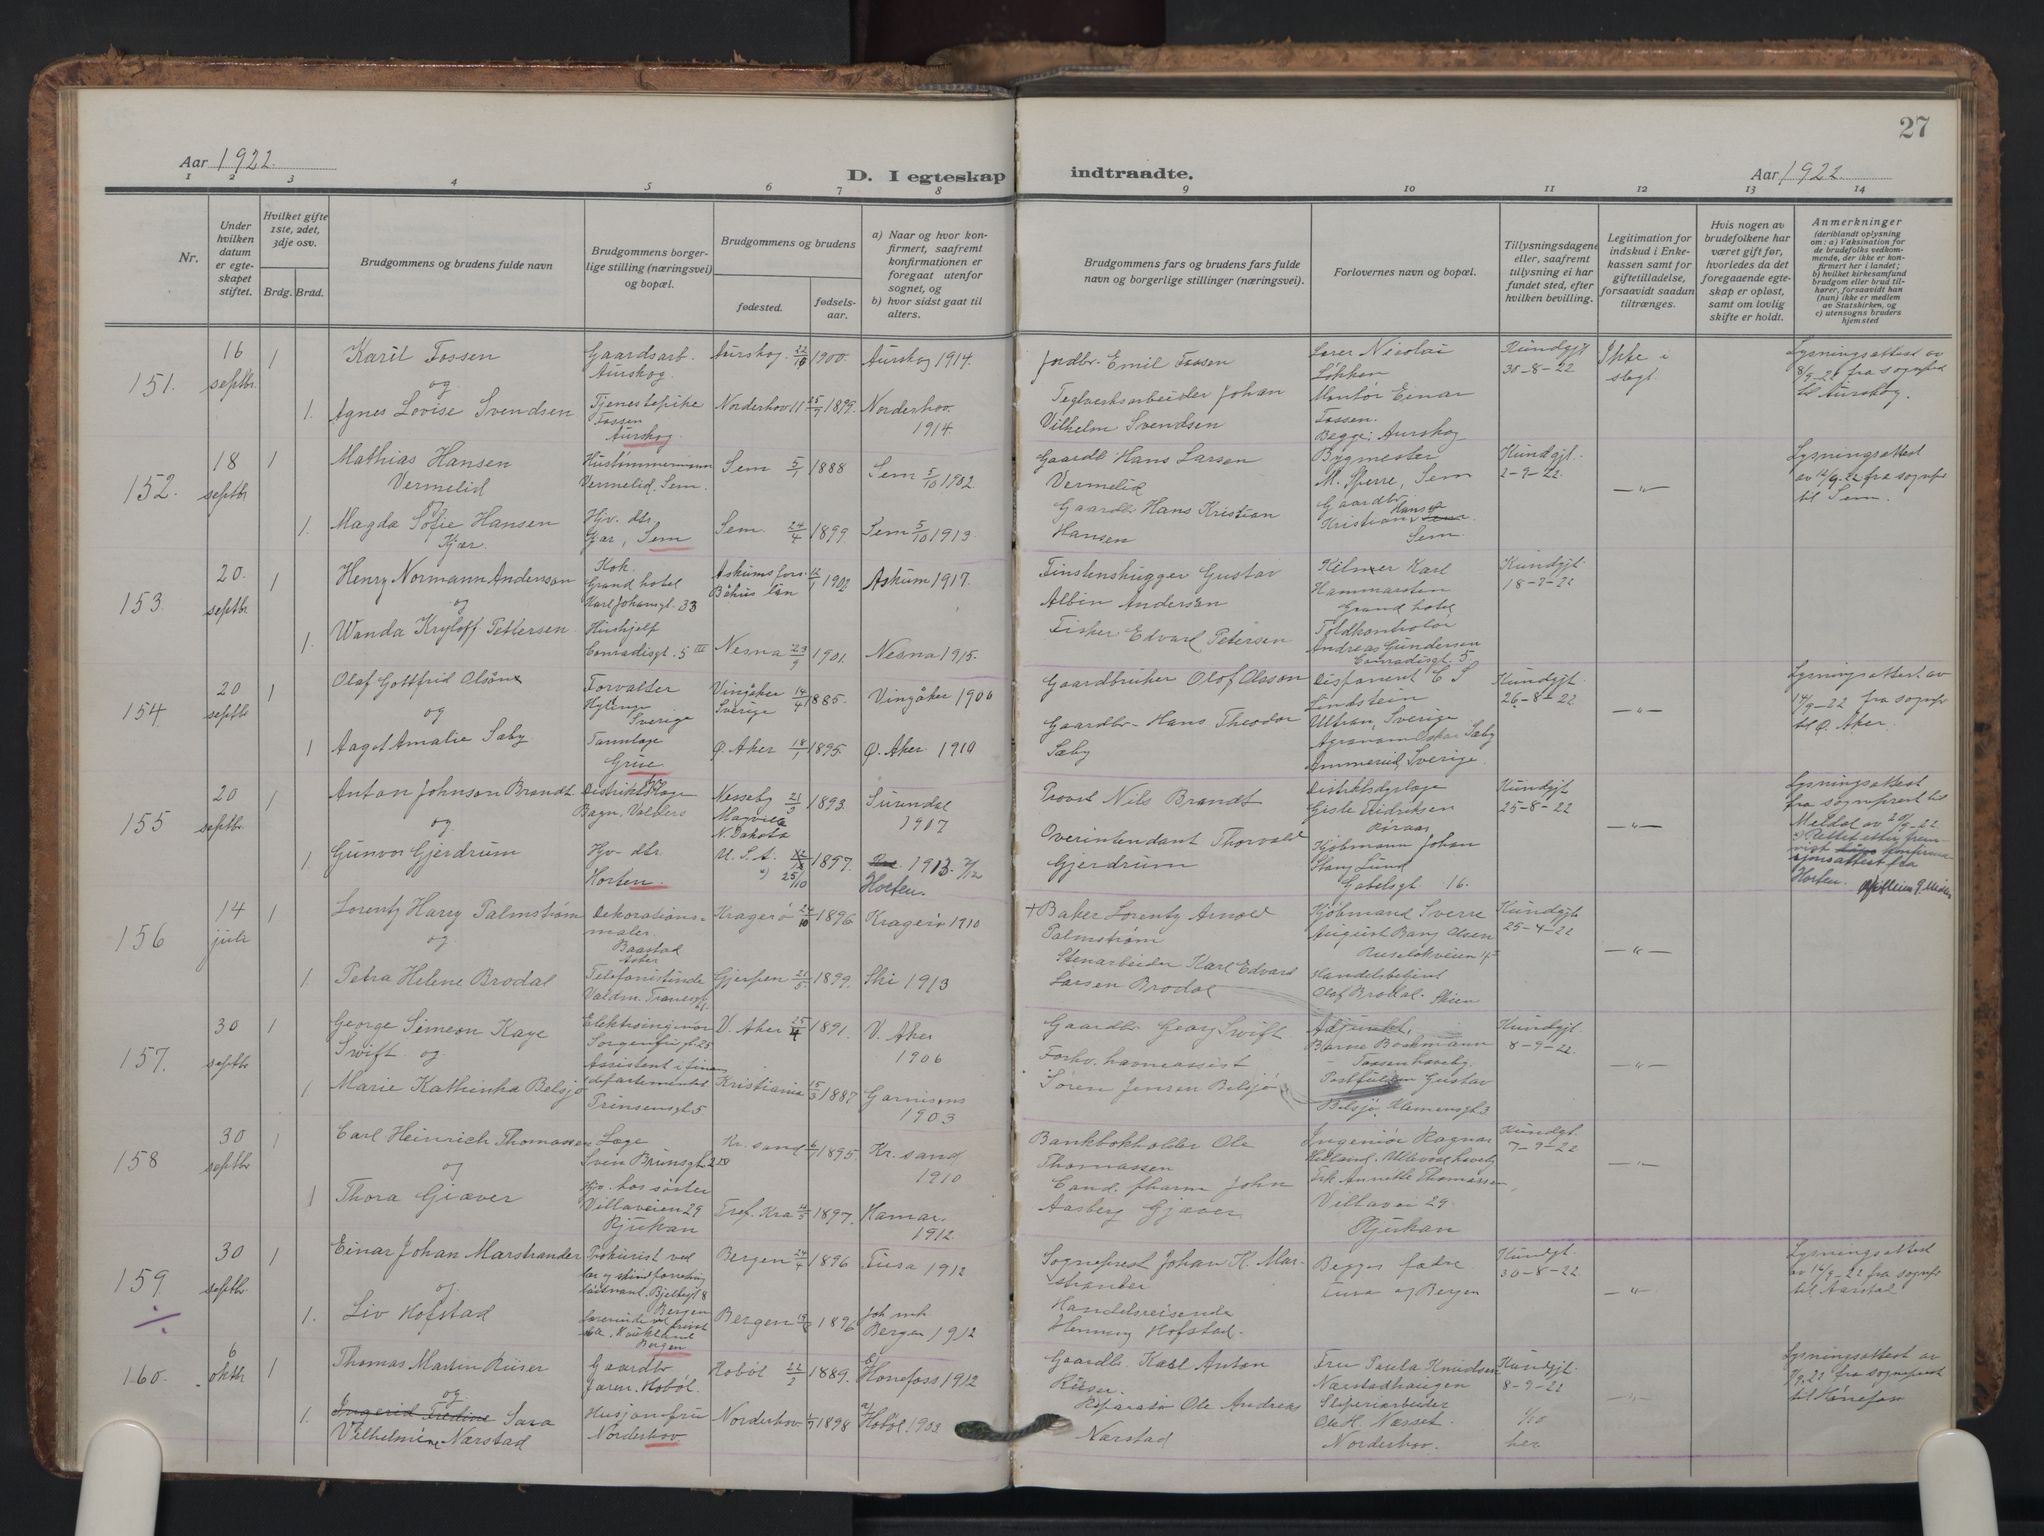 27
Aar 1922.
D. I egteskap indtraadte.
Aar 1922.
1 2 3 4 5 6 7 8 9 10 11 12 13 14
Nr.
Under hvilken datum er egte-skapet stiftet.
Hvilket gifte 1ste, 2det, 3dje osv.
Brdg. Brud.
Brudgommens og brudens fulde navn
Brudgommens borger-lige stilling (næringsvei) og bopæl.
Brudgommens og brudens
fødested.
fødsels-aar.
a) Naar og hvor kon-firmert, saafremt konfirmationen er foregaat utenfor sognet, og
b) hvor sidst gaat til alters.
Brudgommens fars og brudens fars fulde navn og borgerlige stillinger (næringsvei).
Forlovernes navn og bopæl.
Tillysningsdagene eller, saafremt tillysning ei har fundet sted, efter hvilken bevilling.
Legitimation for indskud i Enke-kassen samt for giftetilladelse, forsaavidt saadan tiltrænges.
Hvis nogen av brudefolkene har været gift før, hvorledes da det foregaaende egte-skap er opløst, samt om lovlig skifte er holdt.
Anmerkninger
(deriblandt oplysning om: a) Vaksination for de brudefolks vedkom-mende, der ikke er kon-firmert her i landet; b) hvilket kirkesamfund brudgom eller brud til-hører, forsaavidt han (hun) ikke er medlem av Statskirken, og c) utensogns bruders hjemsted
151. 16 septbr. 1
Karil Fossen
og
1. Agnes Lovise Svendsen
Gaardsarb.
Aurskog.
Tjenestepike
Fossen
Aurskog.
Aurskog 22/10 1900. Aurskog 1914.
Norderhov 11 25/7 1895. Norderhov.
1914.
Jordbr. Emil Fossen
Teglverksarbeider Johan
Vilhelm Svendsen
Lærer Nicolai
Løkken
Montør Einar
Fossen.
Begge: Aurskog
Kundgjt
30-8-22
Ikke i
slegt.
Lysningsattest av
8/9-22 fra sognepr
til Aurskog.
152. 18 septbr 1
Mathias Hansen
Vermelid
1. Magda Sofie Hansen
Kjær.
Hustømmermann
Vermelid, Sem.
Hjv. dtr.
Kjær, Sem
Sem 5/1 1888 Sem 5/10 1902.
Sem. 24/4 1899. Sem 5/10 1913.
Gaardb. Hans Larsen
Vermelid
Gaardb. Hans Kristian
Hansen
Bygmester
M. Sperre, Sem
Gaardbr.
Kristian Hansen
Sem.
Kundgjt.
2-9-22.
—"—
Lysningsattest
av 14/9-22 fra sognepr
til Sem.
153. 20. septbr 1
Henry Normann Anderson
og
1. Wanda Kryloff Pettersen
Kok.
Grand hotel
Karl Johansgt. 33
Hushjelp
Conradisgt. 5 III
Askumsfors.
Båhus län 12/1 1902 Askum 1917.
Nesna 23/9 1901. Nesna 1915.
Finstenshugger Gustav
Albin Anderson
Fisker Edvard Petersen
Kelner Karl
Hammarsten
Grand hotel
Toldkontrolør
Andreas Gundersen
Conradisgt. 5
Kundgjt.
18-7-22
154 20 septbr 1
Olaf Gottfrid Olson
og
1 Aagot Amalie Sæby
Forvalter
Hylinge
Sverige
Tannlæge
Grue
Vingåker
Sverige 14/4 1885. Vingåker 1900
Ø. Aker 18/7 1895. Ø. Aker. 1910
Gaardbruker Olof Olsson
Gaardbr. Hans Theodor
Sæby
Disponent E S
Lindstein
Ultran, Sverige
Agronom Oskar Sæby
Ammerud, Sverige.
Kundgjt.
26-8-22
—"—
Lysningsattest av
14/9-22 fra sognepr
til Ø. Aker.
155 20 septbr 1
Anton Johnson Brandt
og
1. Gunvor Gjerdrum
Distriktslæge
Bagn, Valdres
Hjv. dtr.
Horten.
Nesseby 21/3 1893. Surendal
1907
Mayville
N. Dakota
U.S.A. 25/10 1897. 1913. 7/12
Horten.
Provst Nils Brandt
Overintendant Thorvald
Gjerdrum
Distriktsdyrlæge
Gisle Fridriksen
Røraas
Kjøbmann Johan
Stang Lund
Gabelsgt 16.
Kundgjt
25-8-22
—"—
Lysningsattest
fra sogneprest til
Meldal av 20/9-22.
Rettet etter frem-
vist konfirma-
sjonsattest fra
Horten.
156 14 juli 1
Lorentz Harry Palmstrøm
og
1. Petra Helene Brodal
Dekorations-
maler.
Baastad
Telefonistinde
Valdm. Tranesgt
Kragerø 24/10 1896 Kragerø 1910
Gjerpen 21/5 1899. Ski 1913
+Baker Lorentz Arnold
Palmstrøm
Stenarbeider Karl Edvard
Larsen Brodal
Kjøbmand Sverre
August Bang Olsen
Ruseløkveien
Handelsbetjent
Olaf Brodal. Skien
Kundgjt
25-4-22
—"—
157. 30 septbr 1
George Simeon Kaye
Swift og
1 Marie Kathinka Belsjø
Elektroingeniør
Sorgenfrigt. 25
Assistent i finans
departementet
Prinsensgt 5
V. Aker 25/4 1891. V. Aker
1906
Kristiania 15/3 1887 Garnisons
1903
Gaardbr. Georg Swift
Forhv. havneassist
Søren Jensen Belsjø
Adjunkt
Bjarne Bockmann
Taasen haveby.
Gustav
Belsjø, Klemensgt. 3
Kundgjt.
8-9-22.
—"—
158 30 septbr 1
Carl Heinrich Thomassen
og
1 Thora Giæver
Læge
Sven Brunsgt. 2 IV
Hjv. hos søster
Villaveien 29
Rjukan
Kr. sand 6/7 1895. Kr. sand
1910
Tref. Kra 4/3 1897. Hamar.
1912
Bankbokholder Ole
Thomassen
Cand. pharm John
Aasberg Giæver
Ingeniør Ragnar
Hetland. Ullevaal haveby
Frk Annette Thomassen
Villavei 29.
Rjukan
Kundgjt.
7-9-22
—"—
159 30 septbr. 1
Einar Johan Marstrander
og
1. Liv Hofstad
Prokurist ved
lær og skind forretning
Bergen
Bergen
Bergen 24/4 1896 Fusa 1912
Bergen 1896 Joh. mk
Bergen 1912
Sogneprest Johan K. Mar-
strander
Handelsreisende
Henning Hofstad.
Begges fædre
Fusa og Bergen
Kundgt.
30-8-22.
—"—
Lysningsattest
av 14/9-22 fra sognepr
til Aarstad
160. 6 oktbr 1
Thomas Martin Riiser
og
1. Ingerid Fredine Sara
Vilhelmine Nærstad
Gaardbr.
Jaren. Hobøl.
Husjomfru
Norderhov
Hobøl 22/2 1889. Hønefoss 1912
Norderhov 1898 Hobøl. 1903
Gaardb. Karl Anton
Riiser.
Reparatør Ole Andreas
Nærstad
Fru Paula Knudsen
Nærstadhaugen
Sliperiarbeider
Ole H. Næsset.
Norderhov.
Kundgjt.
8-9-22
1/10
her
—"—
Lysningsattest av
9.22 fra sogneprest
til Hønefoss